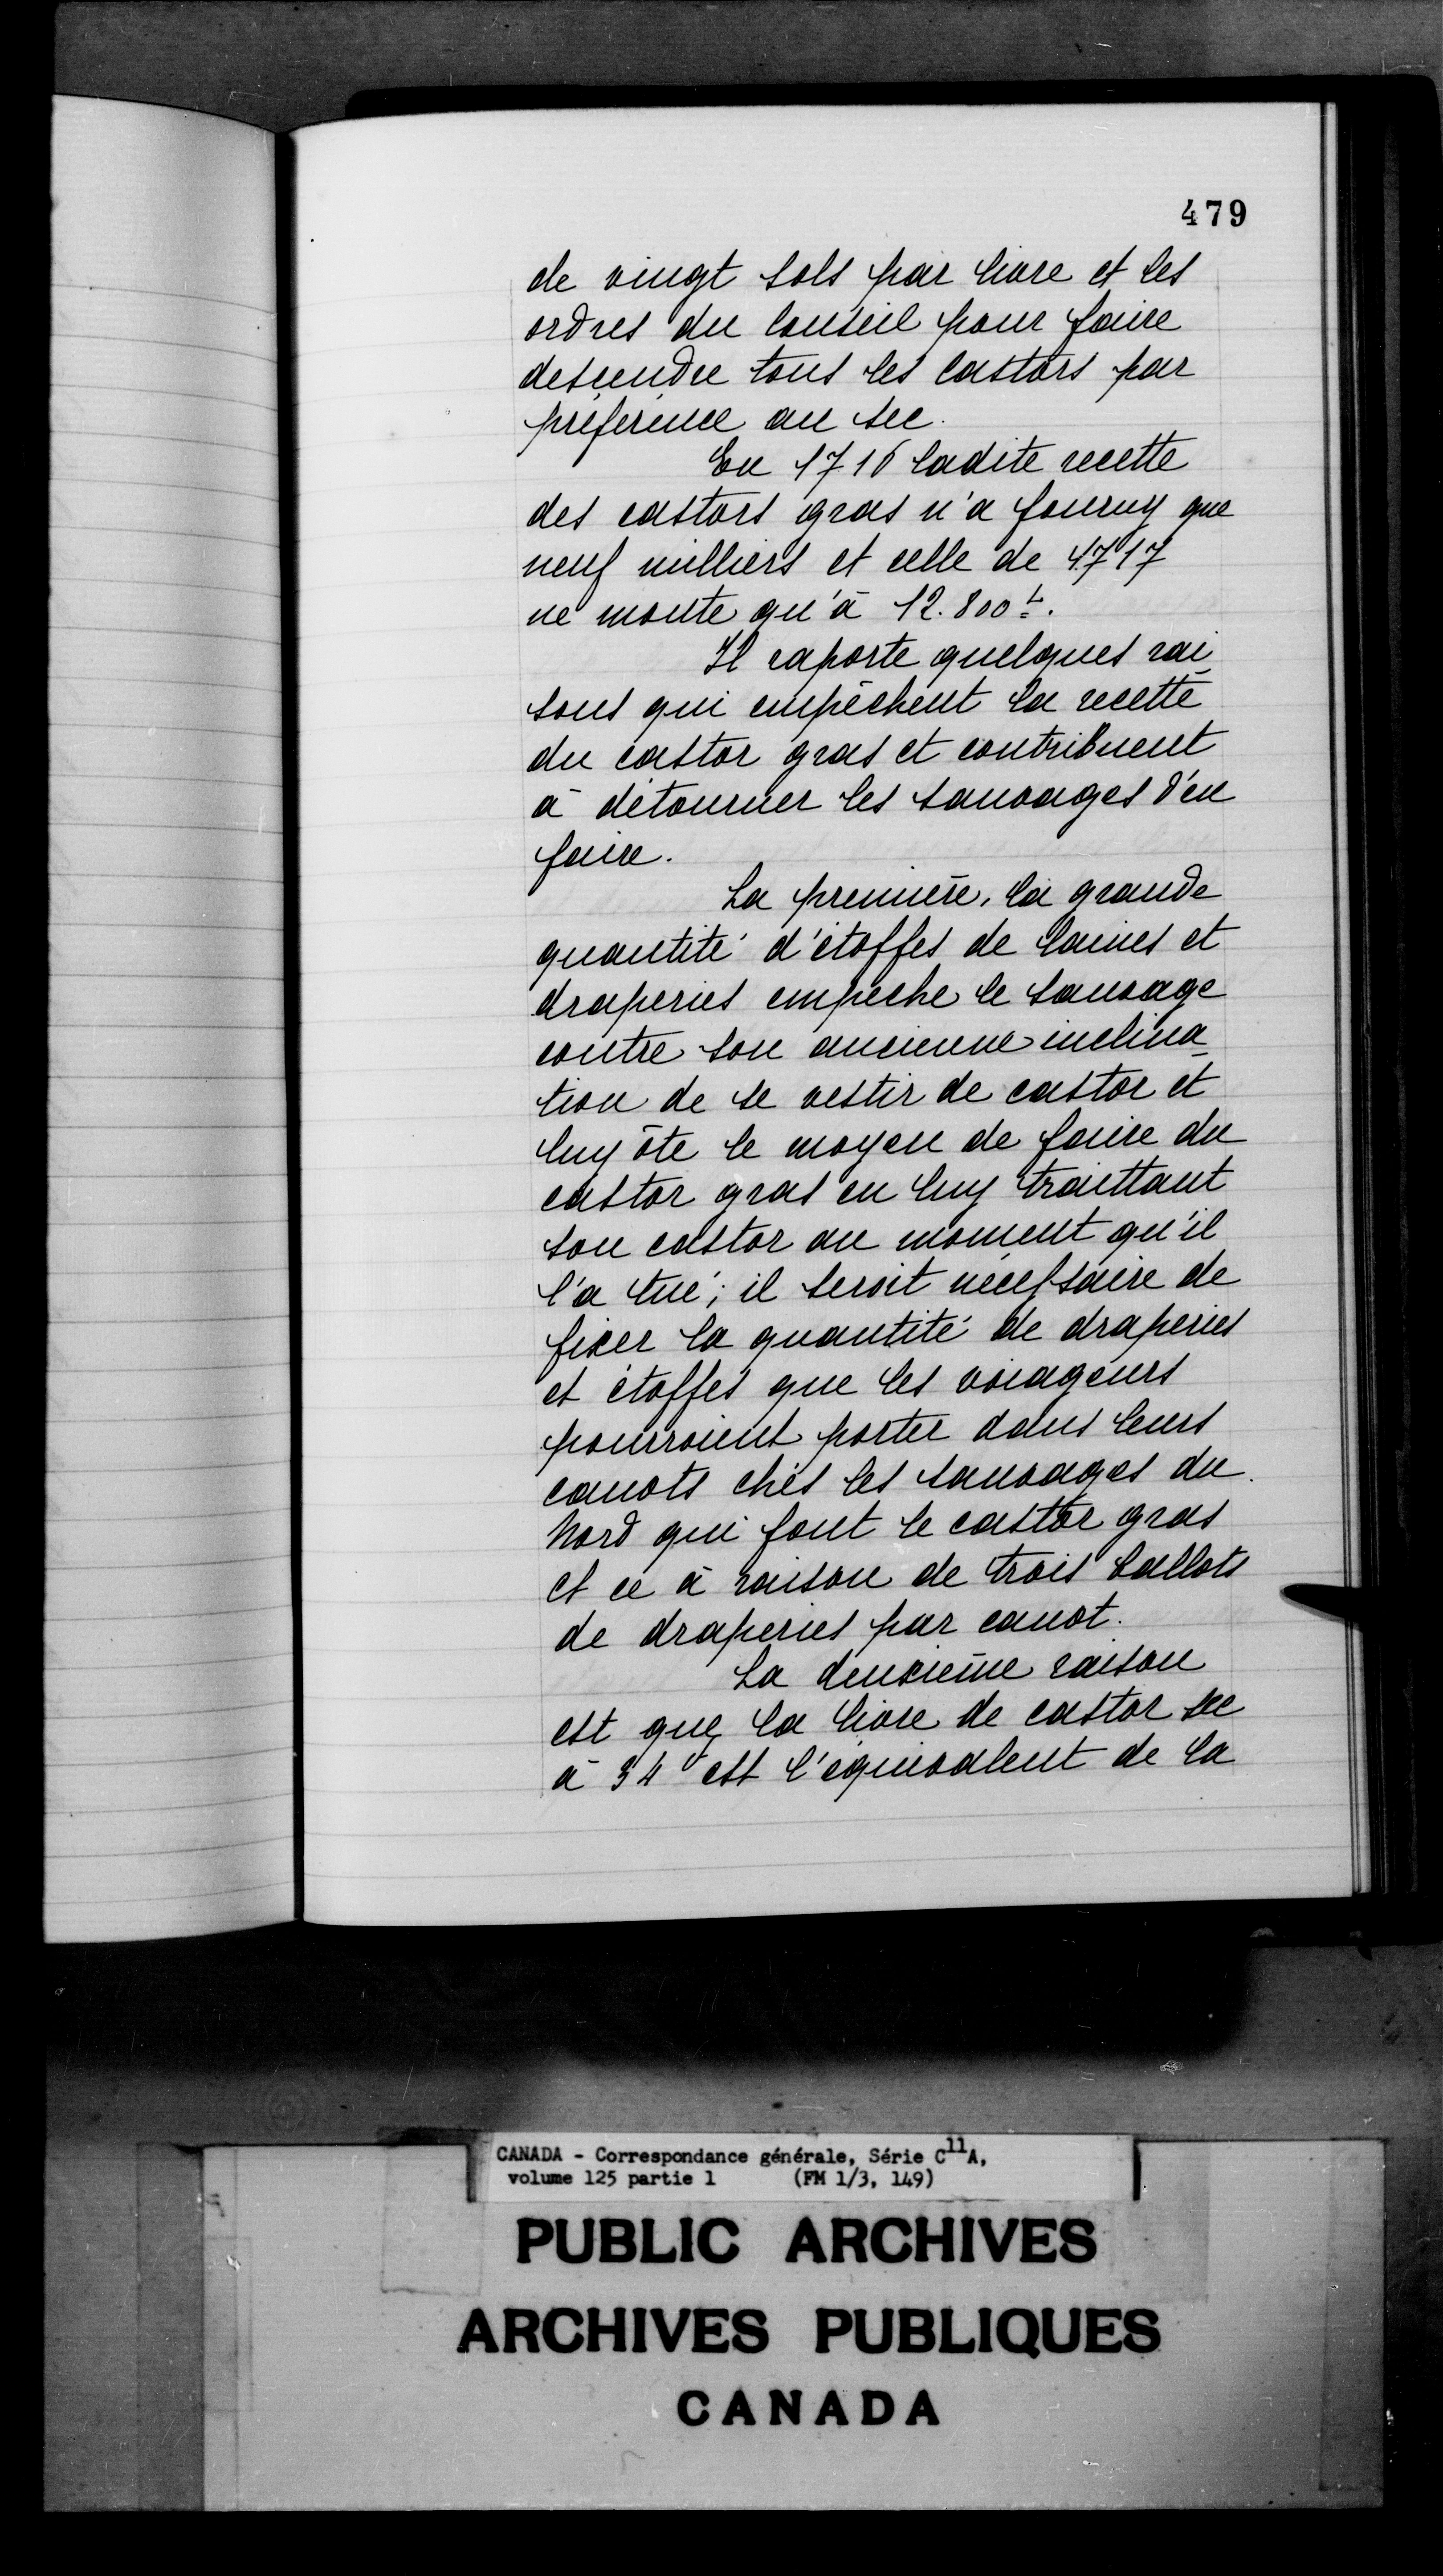 479
de vingt sols par livre et les
ordres du Conseil pour faire
descendre tous les castors par
préférence au sec.
En 1716 ladite recette
des castors gras n'a fourny que
neuf milliers et celle de 1717
ne monte qu'à 12.800 ₶.
Il raporte quelques rai
sons qui empêchent la recette
du castor gras et contribuent
à détourner les sauvages d'en
faire.
La première, la grande
quantité d'étoffes de laines et
draperies empeche le sauvage
contre son ancienne inclina
tion de se vestir de castor et
luy ôte le moyen de faire du
castor gras en luy traittant
son castor au moment qu'il
l'a tué; il seroit nécessaire de
fixer la quantité de draperies
et étoffes que les voiageurs
pourroient porter dans leurs
canots chés les sauvages du
Nord qui font le castor gras
et ce à raison de trois ballots
de draperies par canot.
La deuxième raison
est que la livre de castor sec
à 34 s est l'équivalent de la
CANADA - Correspondance générale, Série C11A,
volume 125 partie 1 (FM 1/3, 149)
PUBLIC ARCHIVES
ARCHIVES PUBLIQUES
CANADA